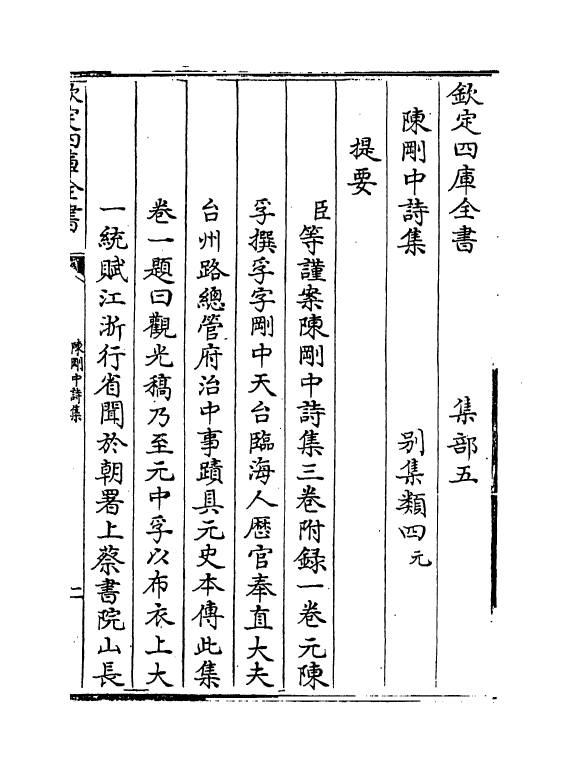 欽定四庫全書 集部五
陳剛中詩集 别集類四元
提要
臣等謹案陳剛中詩集三卷附録一卷元陳
孚撰孚字剛中天台臨海人歴官奉直大夫
台州路總管府治中事蹟具元史本傳此集
卷一題曰觀光稿乃至元中孚以布衣上大
一統賦江浙行省聞於朝署上蔡書院山長
欽定四庫全書
陳剛中詩集
二